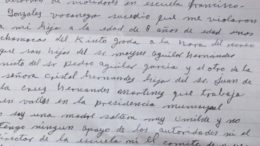 de moradores en escuela francisco
Gonzales vocanegra sucedio que me violaron
a mi hija a la edad de 8 años de edad unos
chamacos del Kinto Grado a la hora del recreo
que son hijos del sr moyses aguilar hernandez
nieto del sr Pedro aguilar garcia y el otro de la
señora Cristal Hernandes hijas del sr Juan de
la cruz Hernandes martinez que trabaja
en valles en la presidencia municipal
soy una madre soltera muy umilde y no
tengo ningun apoyo de los autoridades ni el
director de la escuela ni el comite